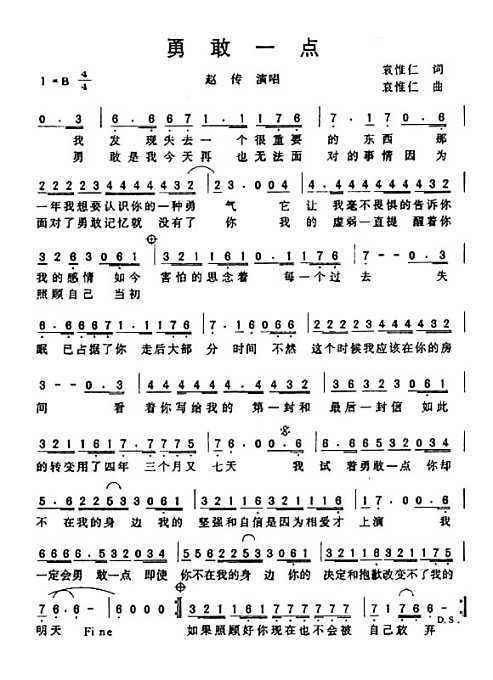 勇敢一点
1=B 4/4 赵传 演唱 袁惟仁 词
袁惟仁 曲
0.3 6.667 1.1176 7.170.6
我 发现失去一个很重要 的东西 那
勇敢是我今天再也无法面 对的事情因为
222232444444432 23.004 4.343444444432
一年我想要认识你的一种勇 气 它 让我毫不畏惧的告诉你
面对了勇敢记忆就 没有了 你 我 的虚弱一直提 醒着你
3263061 321161 0.1176 7--0.3
我的感情 如今 害怕的思念着 每一个过 去 失
照顾自己 当初
6.66671.1176 7.16066 55554444432
眠 已占据了你 走后大部 分时间不然 这个时候我应该在你的房
3--0.3 44444.4.432 363233061
间 看 着你写给我的 第一封和 最后一封信 如此
32111617.77755 76.00.6 665.32034
的转变用了四年 三个月又 七天 我 试着勇敢一点 你却
5.622533061 3211611176 17.00.6
不 在我的身 边我的 坚强和自信是因为相爱才 上演 我
6666.532034 5.622533061 321117616176
一定会勇 敢一点 即使 你不在我的身 边你的 决定和抱歉改变不了我的
76.6- 6000 321117177777 717666-
明天 Fine 如果照顾好你现在也不会被 自己放弃
D.S.